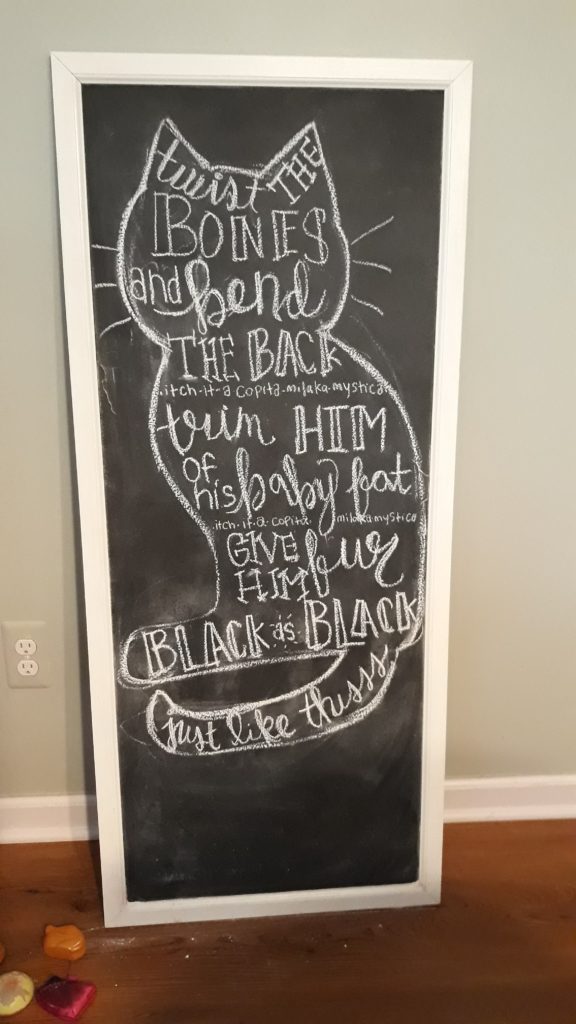 twist THE
BONES
and bend
THE BACK
itch-it-a copita-milaka-mystica
trim HIM
of his baby fat
itch-it-a-copita milakamystica
GIVE HIM fur
BLACK as BLACK
just like thisss